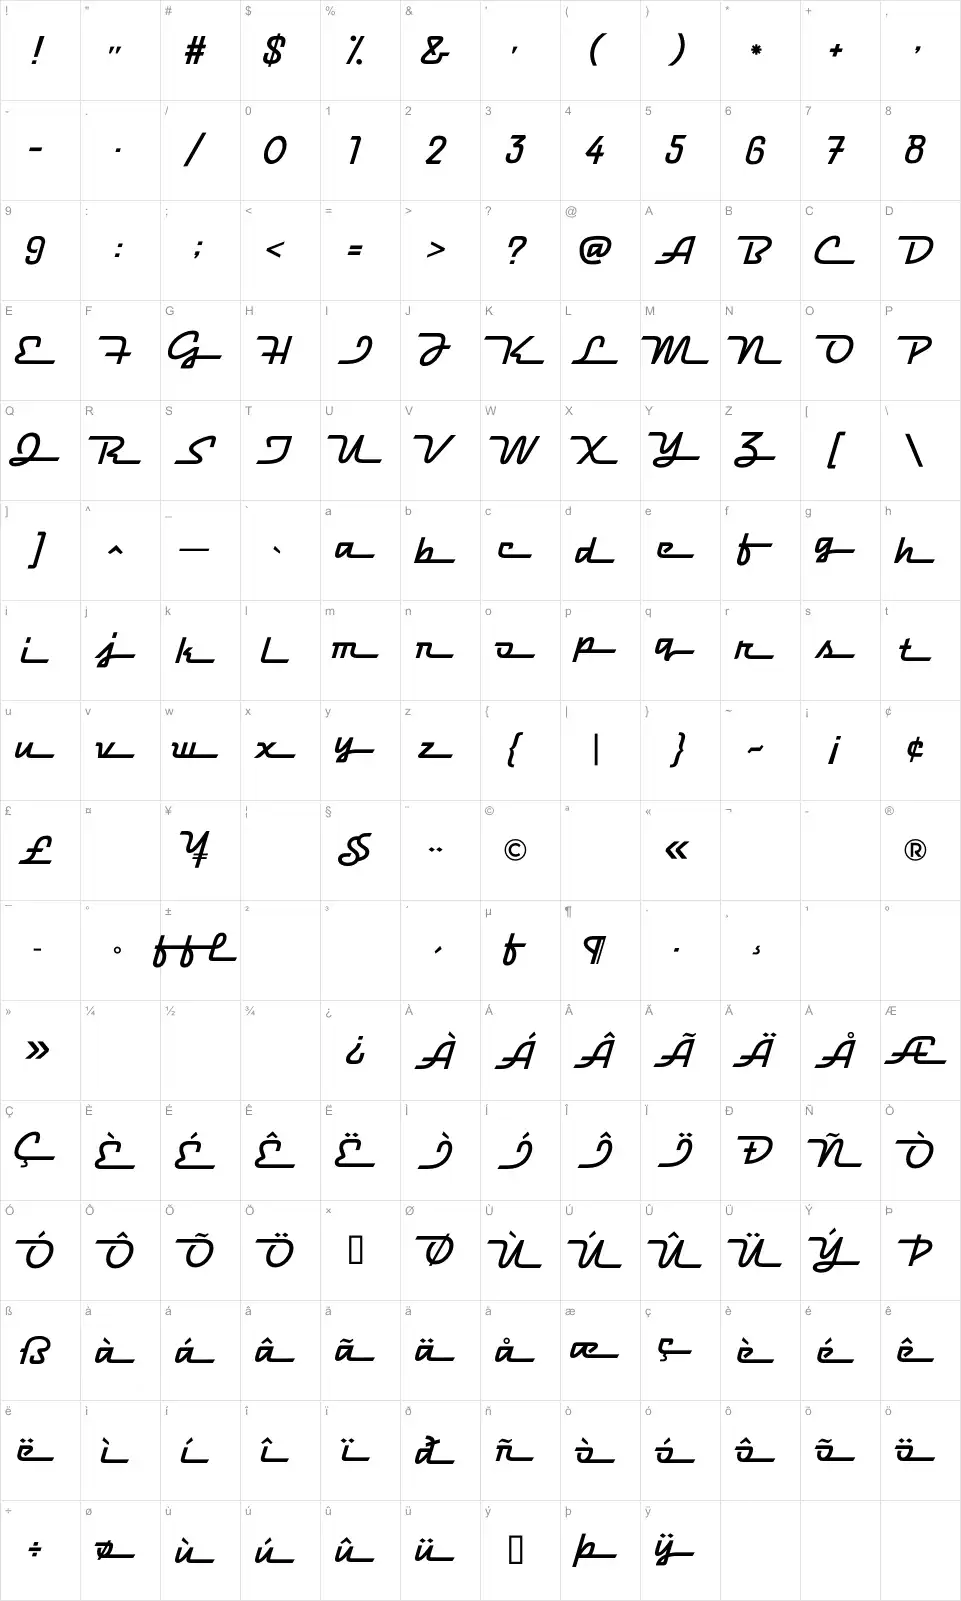 ! " # $ % & ' ( ) * + ,
! " # $ % & ' ( ) * + ,
- . / 0 1 2 3 4 5 6 7 8
- . / 0 1 2 3 4 5 6 7 8
9 : ; < = > ? @ A B C D
9 : ; < = > ? @ A B C D
E F G H I J K L M N O P
E F G H I J K L M N O P
Q R S T U V W X Y Z [ \
Q R S T U V W X Y Z [ \
] ^ _ ` a b c d e f g h
] ^ _ ` a b c d e f g h
i j k l m n o p q r s t
i j k l m n o p q r s t
u v w x y z { | } ~ ¡ ¢
u v w x y z { | } ~ ¡ ¢
£ ¤ ¥ ¦ § ¨ © ª « ¬ - ®
£ ¥ § ¨ © « ®
¯ ° ± ² ³ ´ µ ¶ · ¸ ¹ º
¯ ° ffl ´ f ¶ · ¸
» ¼ ½ ¾ ¿ À Á Â Ã Ä Å Æ
» ¿ À Á Â Ã Ä Å Æ
Ç È É Ê Ë Ì Í Î Ï Ð Ñ Ò
Ç È É Ê Ë Ì Í Î Ï Ð Ñ Ò
Ó Ô Õ Ö × Ø Ù Ú Û Ü Ý Þ
Ó Ô Õ Ö Ø Ù Ú Û Ü Ý Þ
ß à á â ã ä å æ ç è é ê
ß à á â ã ä å æ ç è é ê
ë ì í î ï ð ñ ò ó ô õ ö
ë ì í î ï ð ñ ò ó ô õ ö
÷ ø ù ú û ü ý þ ÿ
÷ ø ù ú û ü þ ÿ